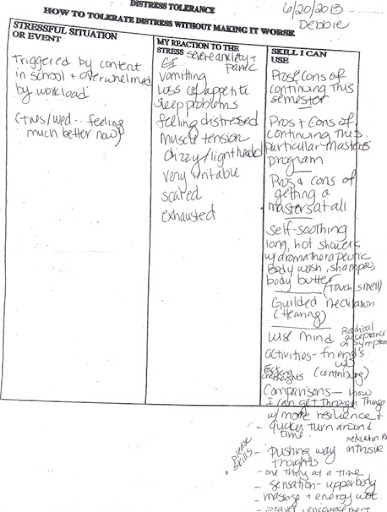 DISTRESS TOLERANCE
HOW TO TOLERATE DISTRESS WITHOUT MAKING IT WORSE
6/20/2013
Debbie
STRESSFUL SITUATION
OR EVENT
Triggered by content
in school + overwhelmed
by workload
(tues/wed.. feeling
much better now)
MY REACTION TO THE
STRESS severe anxiety +
panic
GI
vomiting
loss of appetite
sleep problems
feeling distressed
muscle tension
dizzy/lighthead
very irritable
scared
exhausted
SKILL I CAN
USE
Pros + cons of
continuing this
semester
Pros + cons of
continuing this
particular masters
program
Pros + cons of
getting a
masters at all
self-soothing
long, hot showers
w/ aromatherapeutic
body wash, shampoo,
body butter
(touch, smell)
Guided meditation
(Hearing)
Wise mind Radical
acceptance
of symptoms
activities - friends
(contribute)
Comparisons - how
I can get through things
w/ more resilience +
quicker turn around
time.
- pushing away intrusive
thoughts
skills
- one thing at a time
- sensation - upperbody
- massage + energy work
- prayer + encouragement